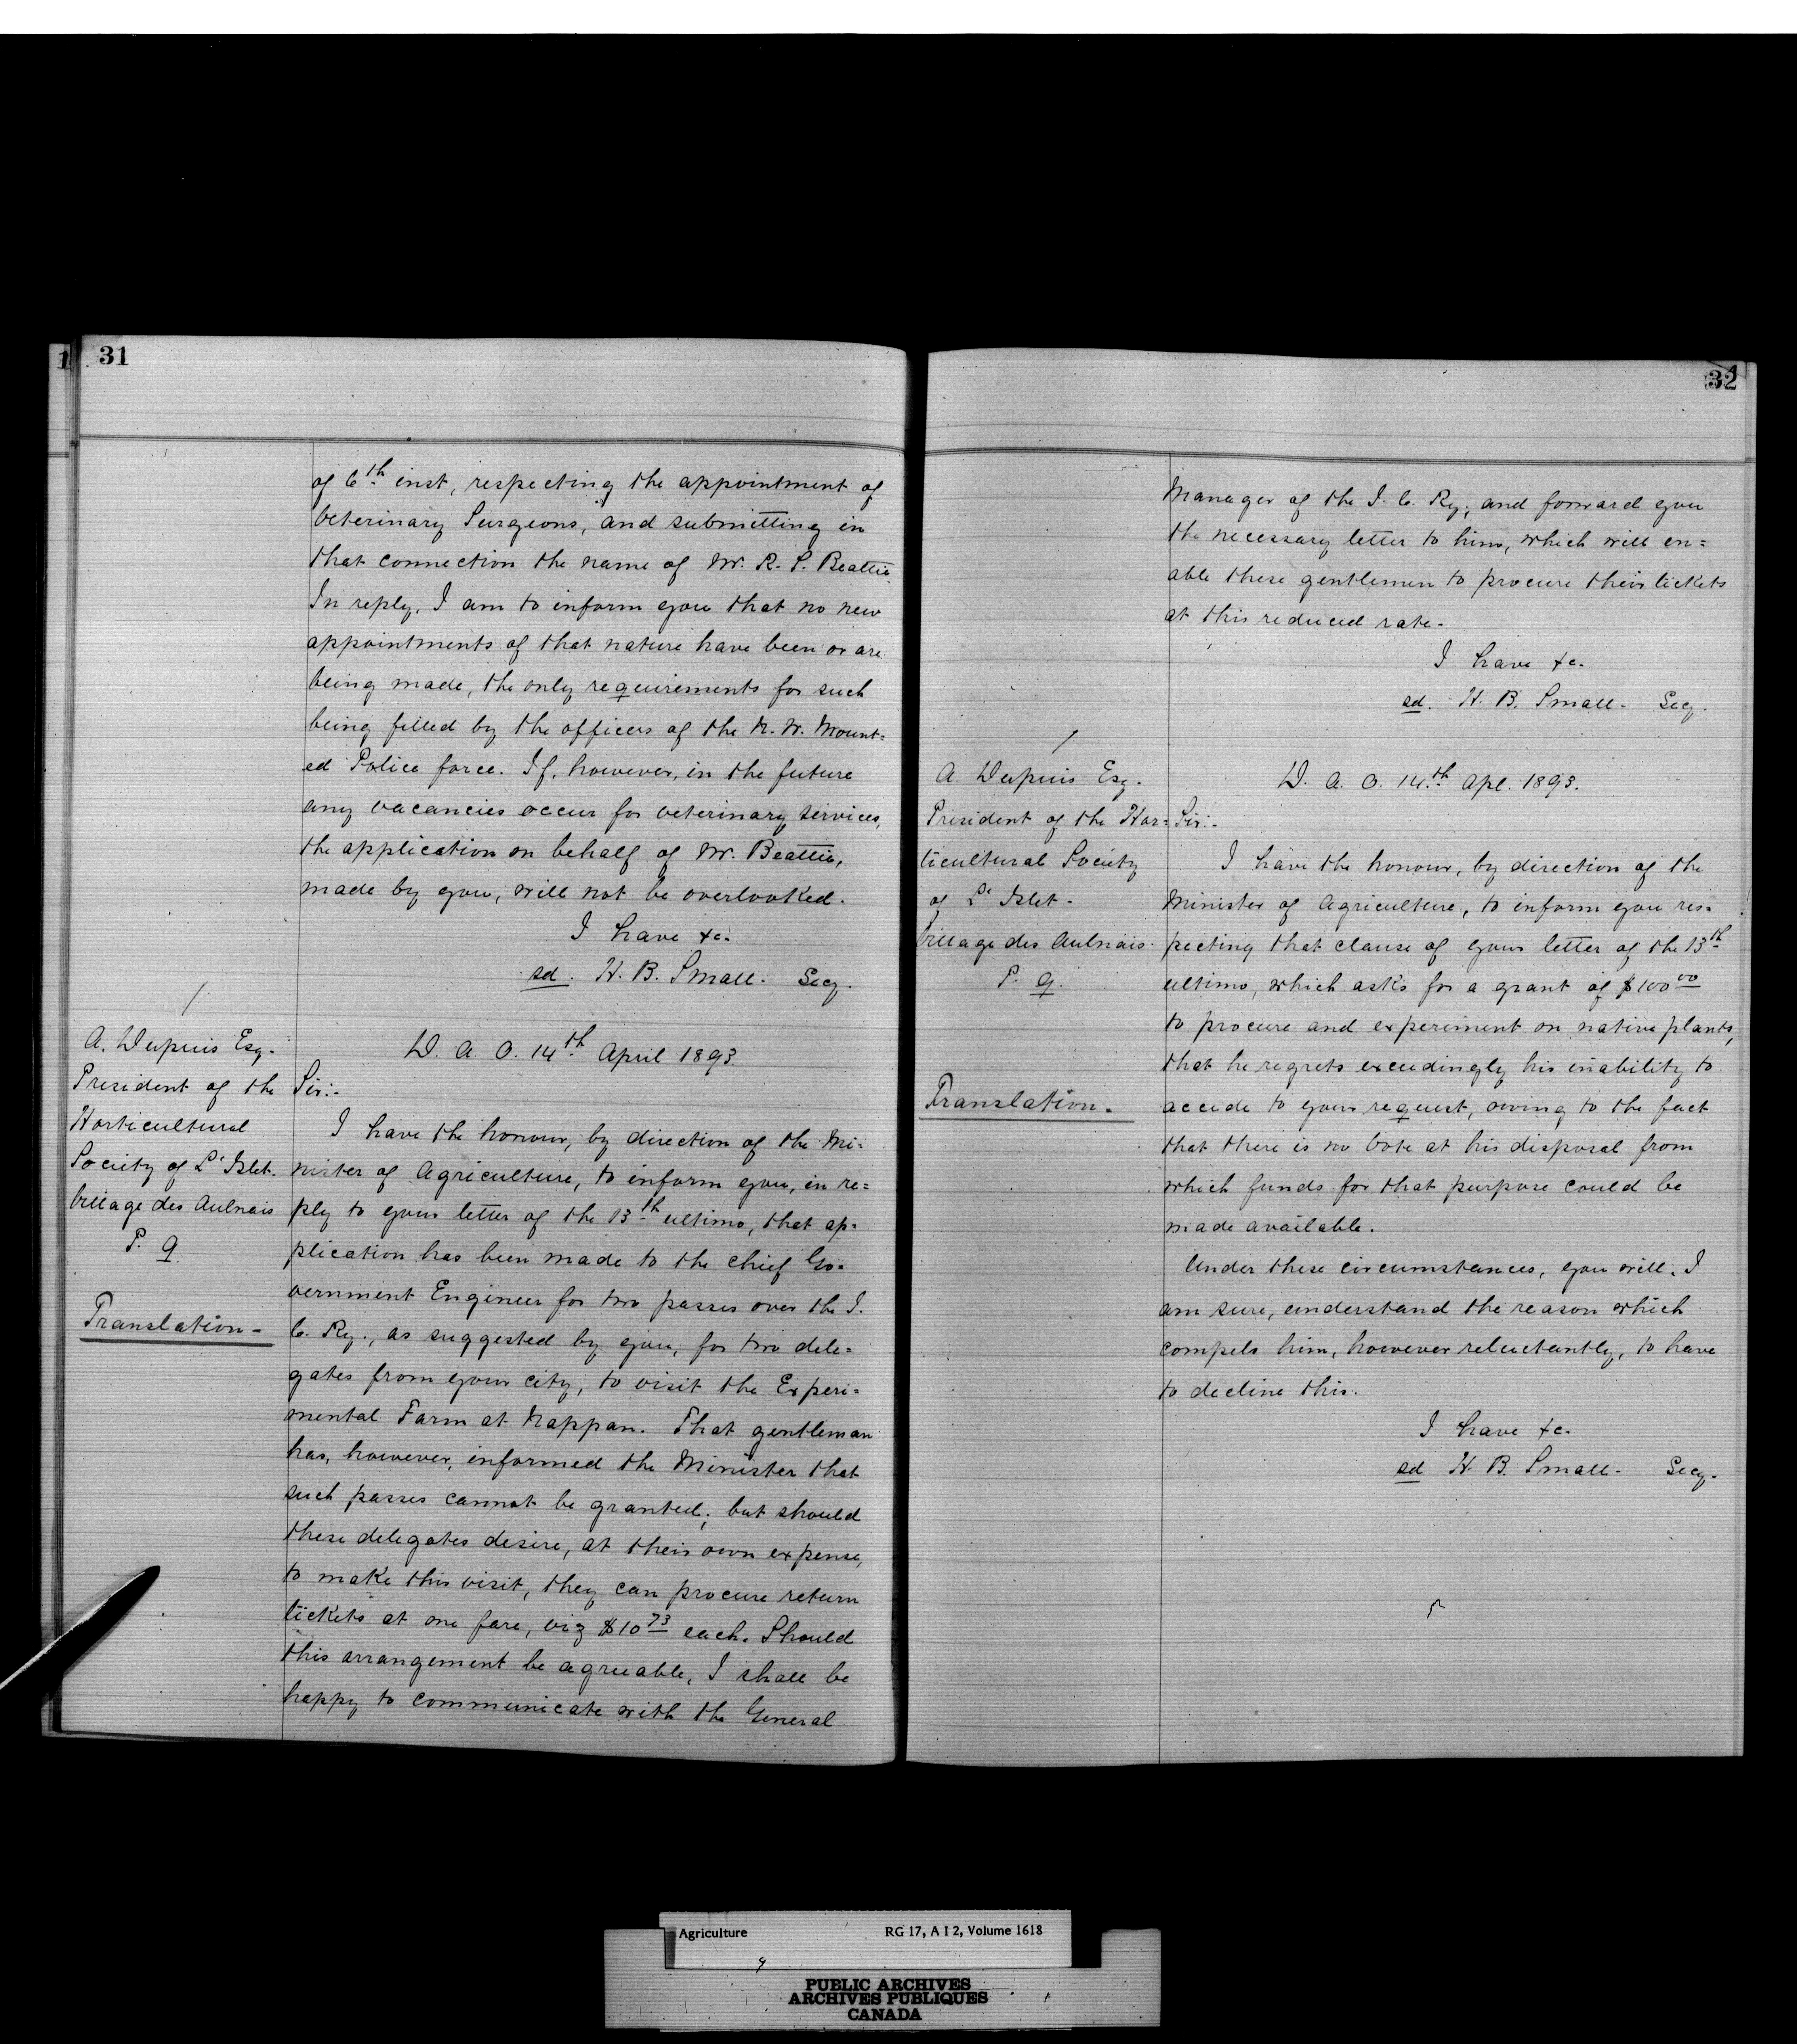 31
of 6th inst, respecting the appointment of
Veterinary Surgeons, and submitting in
that connection the name of Mr. R. S. Beattie
In reply, I am to inform you that no new
appointments of that nature have been or are
being made, the only requirements for such
being filled by the officers of the N. W. Mount=
ed Police force. If, however, in the future
any vacancies occur for veterinary services,
the application on behalf of Mr. Beattie,
made by you, will not be overlooked.
I have &c.
sd. H. B. Small. Secy.
A. Dupuis Esq.
President of the
Horticultural
Society of L'Islet.
Village des Aulnais
P. Q.
Translation -
D. A. O. 14th April 1893.
Sir:-
I have the honour, by direction of the Mi=
nister of Agriculture, to inform you, in re=
ply to your letter of the 13th ultimo, that ap=
plication has been made to the Chief Go=
vernment Engineer for two passes over the I.
C. Ry., as suggested by you, for two dele=
gates from your city, to visit the Experi=
mental Farm at Nappan. That gentleman
has, however, informed the Minister that
such passes cannot be granted; but should
these delegates desire, at their own expense,
to make this visit, they can procure return
tickets at one fare, viz $10 73 each. Should
this arrangement be agreeable, I shall be
happy to communicate with the General
32
Manager of the I. C. Ry; and forward you
the necessary letter to him, which will en=
able these gentlemen to procure their tickets
at this reduced rate.
I have &c.
sd. H. B. Small - Secy.
A Dupuis Esq.
President of the Hor=
ticultural Society
of L'Islet -
Village des Aulnais.
P. Q.
Translation.
D. A. O. 14th Apl. 1893.
Sir:-
I have the honour, by direction of the
Minister of Agriculture, to inform you res=
pecting that clause of your letter of the 13th
ultimo, which asks for a grant of $100 00
to procure and experiment on native plants,
that he regrets exceedingly his inability to
accede to your request, owing to the fact
that there is no Vote at his disposal from
which funds for that purpose could be
made available.
Under these circumstances, you will, I
am sure, understand the reason which
compels him, however reluctantly, to have
to decline this.
I have &c.
sd H. B. Small - Secy.
Agriculture RG 17, A I 2, Volume 1618
PUBLIC ARCHIVES
ARCHIVES PUBLIQUES
CANADA